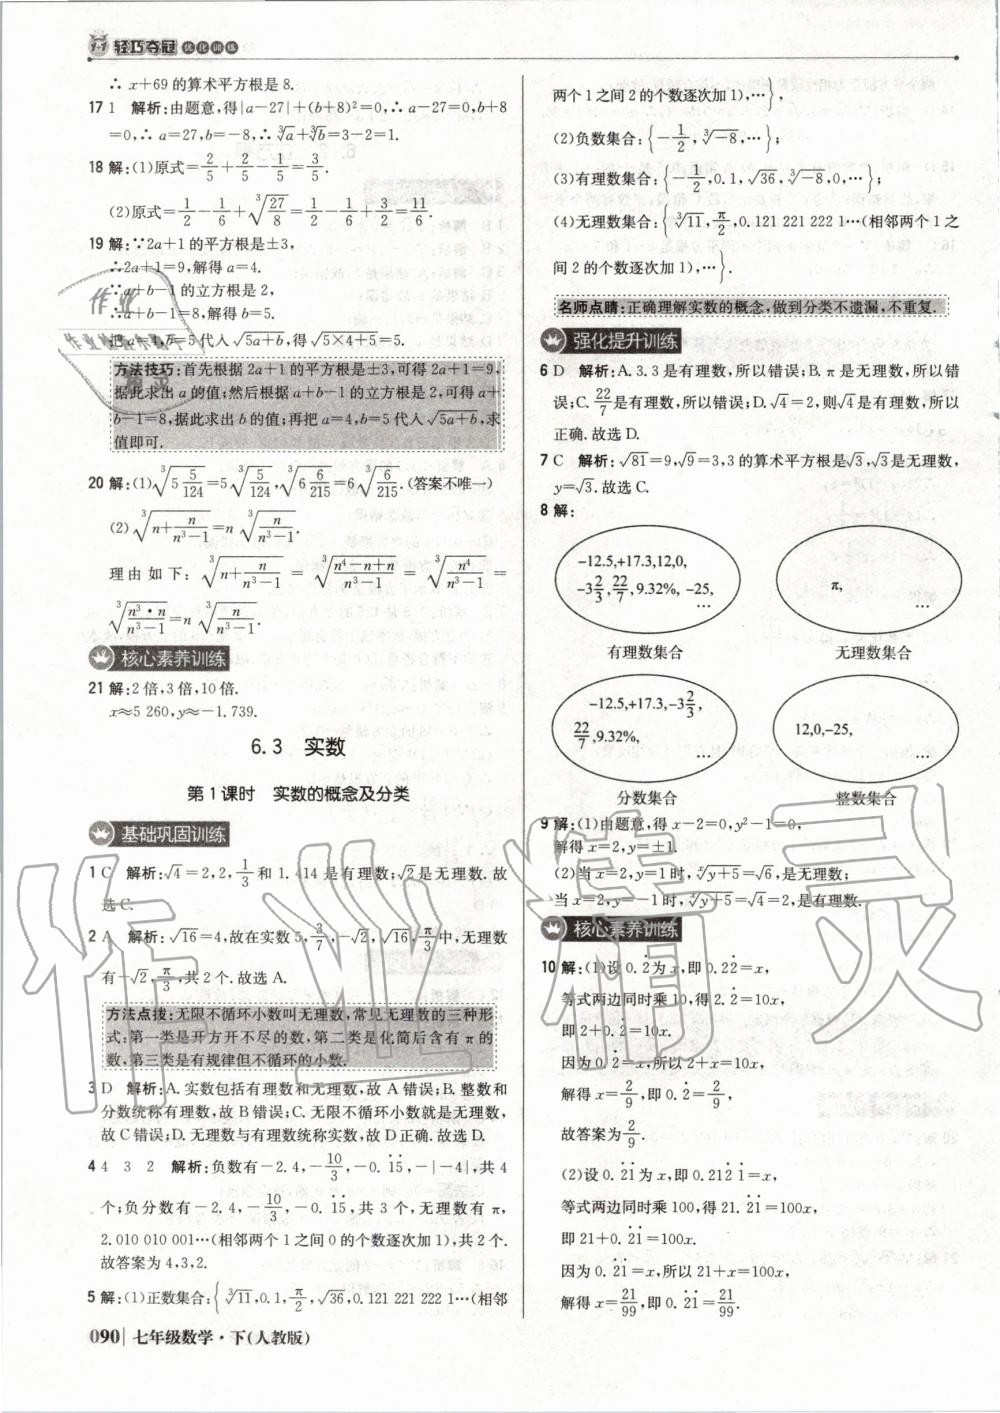 轻巧夺冠 优化训练
∴ x+69的算术平方根是8.
17 1 解析:由题意,得|a−27|+(b+8)²=0,∴a−27=0,b+8
=0,∴a=27,b=−8,∴∛a+∛b=3−2=1.
18 解:(1)原式=2/5+2/5−1/5=3/5.
(2)原式=1/2−1/6+∛(27/8)=1/2−1/6+3/2=11/6.
19 解:∵2a+1的平方根是±3,
∴2a+1=9,解得a=4.
∵a+b−1的立方根是2,
∴a+b−1=8,解得b=5.
把a=4,b=5代入√(5a+b),得√(5×4+5)=5.
方法技巧:首先根据2a+1的平方根是±3,可得2a+1=9,
据此求出a的值;然后根据a+b−1的立方根是2,可得a+
b−1=8,据此求出b的值;再把a=4,b=5代入√(5a+b),求
值即可.
20 解:(1)∛(5 5/124)=5∛(5/124),∛(6 6/215)=6∛(6/215).(答案不唯一)
(2)∛(n+n/(n³−1))=n∛(n/(n³−1)).
理由如下:∛(n+n/(n³−1))=∛((n⁴−n+n)/(n³−1))=∛(n⁴/(n³−1))=
∛(n³·n/(n³−1))=n∛(n/(n³−1)).
核心素养训练
21 解:2倍,3倍,10倍.
x≈5 260,y≈−1.739.
6.3 实数
第1课时 实数的概念及分类
基础巩固训练
1 C 解析:√4=2,2,1/3和1.414是有理数;√2是无理数.故
选C.
2 A 解析:√16=4,故在实数5,3/7,−√2,√16,π/3中,无理数
有−√2,π/3,共2个.故选A.
方法点拨:无限不循环小数叫无理数,常见无理数的三种形
式:第一类是开方开不尽的数,第二类是化简后含有π的
数,第三类是有规律但不循环的小数.
3 D 解析:A.实数包括有理数和无理数,故A错误;B.整数和
分数统称有理数,故B错误;C.无限不循环小数就是无理数,
故C错误;D.无理数与有理数统称实数,故D正确.故选D.
4 4 3 2 解析:负数有−2.4,−10/3,−0.1̇5̇,−|−4|,共4
个;负分数有−2.4,−10/3,−0.1̇5̇,共3个,无理数有π,
2.010 010 001…(相邻两个1之间0的个数逐次加1),共2个.
故答案为4,3,2.
5 解:(1)正数集合:{∛11,0.1,π/2,√36,0.121 221 222 1…(相邻
两个1之间2的个数逐次加1),…},
(2)负数集合:{−1/2,∛−8,…};
(3)有理数集合:{−1/2,0.1,√36,∛−8,0,…};
(4)无理数集合:{∛11,π/2,0.121 221 222 1…(相邻两个1之
间2的个数逐次加1),…}.
名师点睛:正确理解实数的概念,做到分类不遗漏,不重复.
强化提升训练
6 D 解析:A.3.3是有理数,所以错误;B.π是无理数,所以错
误;C.22/7是有理数,所以错误;D.√4=2,则√4是有理数,所以
正确.故选D.
7 C 解析:√81=9,√9=3,3的算术平方根是√3,√3是无理数,
y=√3.故选C.
8 解:
−12.5,+17.3,12,0,
−3 2/3,22/7,9.32%,−25,
…
有理数集合
π,
…
无理数集合
−12.5,+17.3,−3 2/3,
22/7,9.32%,
…
分数集合
12,0,−25,
…
整数集合
9 解:(1)由题意,得x−2=0,y²−1=0,
解得x=2,y=±1.
(2)当x=2,y=1时,ˣ√(y+5)=√6,是无理数;
当x=2,y=−1时,ˣ√(y+5)=√4=2,是有理数.
核心素养训练
10 解:(1)设0.2̇为x,即0.22̇=x,
等式两边同时乘10,得2.2̇=10x,
即2+0.2̇=10x.
因为0.2̇=x,所以2+x=10x,
解得x=2/9,即0.2̇=2/9,
故答案为2/9.
(2)设0.2̇1̇为x,即0.212̇1̇=x,
等式两边同时乘100,得21.2̇1̇=100x,
即21+0.2̇1̇=100x.
因为0.2̇1̇=x,所以21+x=100x,
解得x=21/99,即0.2̇1̇=21/99.
090 七年级数学·下(人教版)
作业精灵